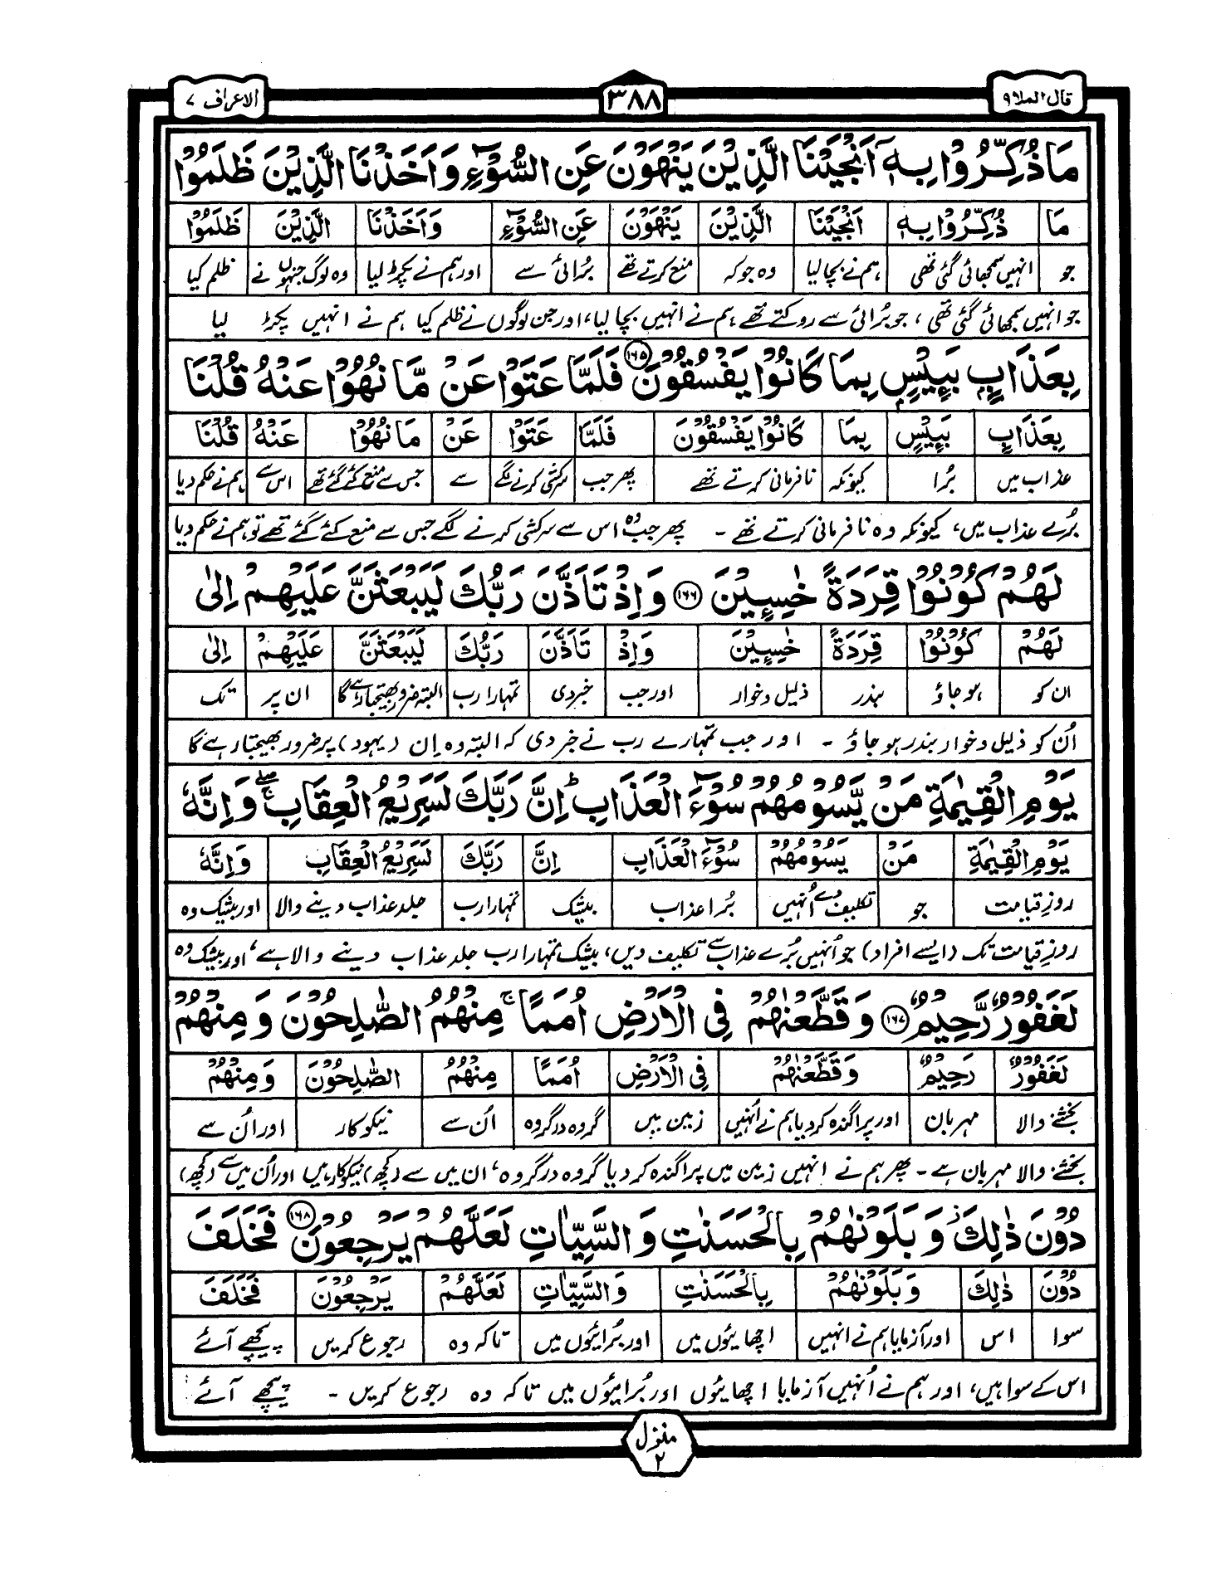 قال الملا ٩
٣٨٨
الاعراف ٧
مَا ذُكِّرُوْا بِهٖۤ اَنْجَيْنَا الَّذِيْنَ يَنْهَوْنَ عَنِ السُّوْٓءِ وَاَخَذْنَا الَّذِيْنَ ظَلَمُوْا
مَا ذُكِّرُوْا بِهٖۤ اَنْجَيْنَا الَّذِيْنَ يَنْهَوْنَ عَنِ السُّوْٓءِ وَاَخَذْنَا الَّذِيْنَ ظَلَمُوْا
جو انہیں سمجھائی گئی تھی ہم نے بچا لیا وہ جو کہ منع کرتے تھے بُرائی سے اور ہم نے پکڑ لیا وہ لوگ جنہوں نے ظلم کیا
جو انہیں سمجھائی گئی تھی، جو بُرائی سے روکتے تھے ہم نے انہیں بچا لیا، اور جن لوگوں نے ظلم کیا ہم نے انہیں پکڑ لیا
بِعَذَابٍۭ بَـِٕيْسٍۭ بِمَا كَانُوْا يَفْسُقُوْنَ ۝١٦٥ فَلَمَّا عَتَوْا عَنْ مَّا نُهُوْا عَنْهُ قُلْنَا
بِعَذَابٍ بَـِٕيْسٍ بِمَا كَانُوْا يَفْسُقُوْنَ فَلَمَّا عَتَوْا عَنْ مَا نُهُوْا عَنْهُ قُلْنَا
عذاب میں بُرا کیونکہ نافرمانی کرتے تھے پھر جب سرکشی کرنے لگے سے جس سے منع کئے گئے تھے اس سے ہم نے حکم دیا
بُرے عذاب میں، کیونکہ وہ نافرمانی کرتے تھے - پھر جب وہ اس سے سرکشی کرنے لگے جس سے منع کئے گئے تھے تو ہم نے حکم دیا
لَهُمْ كُوْنُوْا قِرَدَةً خٰسِـِٕيْنَ ۝١٦٦ وَاِذْ تَاَذَّنَ رَبُّكَ لَيَبْعَثَنَّ عَلَيْهِمْ اِلٰى
لَهُمْ كُوْنُوْا قِرَدَةً خٰسِـِٕيْنَ وَاِذْ تَاَذَّنَ رَبُّكَ لَيَبْعَثَنَّ عَلَيْهِمْ اِلٰى
ان کو ہو جاؤ بندر ذلیل و خوار اور جب خبر دی تمہارا رب البتہ ضرور بھیجتا رہے گا ان پر تک
اُن کو ذلیل و خوار بندر ہو جاؤ - اور جب تمہارے رب نے خبر دی کہ البتہ وہ اِن (یہود) پر ضرور بھیجتا رہے گا
يَوْمِ الْقِيٰمَةِ مَنْ يَّسُوْمُهُمْ سُوْٓءَ الْعَذَابِ ؕ اِنَّ رَبَّكَ لَسَرِيْعُ الْعِقَابِ ۖۚ وَاِنَّهٗ
يَوْمِ الْقِيٰمَةِ مَنْ يَسُوْمُهُمْ سُوْٓءَ الْعَذَابِ اِنَّ رَبَّكَ لَسَرِيْعُ الْعِقَابِ وَاِنَّهٗ
روزِ قیامت جو تکلیف دے اُنہیں بُرا عذاب بیشک تمہارا رب جلد عذاب دینے والا اور بیشک وہ
روزِ قیامت تک (ایسے افراد) جو اُنہیں بُرے عذاب سے تکلیف دیں، بیشک تمہارا رب جلد عذاب دینے والا ہے، اور بیشک وہ
لَغَفُوْرٌ رَّحِيْمٌ ۝١٦٧ وَقَطَّعْنٰهُمْ فِى الْاَرْضِ اُمَمًا ۚ مِنْهُمُ الصّٰلِحُوْنَ وَمِنْهُمْ
لَغَفُوْرٌ رَحِيْمٌ وَقَطَّعْنٰهُمْ فِى الْاَرْضِ اُمَمًا مِنْهُمُ الصّٰلِحُوْنَ وَمِنْهُمْ
بخشنے والا مہربان اور پراگندہ کر دیا ہم نے اُنہیں زمین میں گروہ در گروہ اُن سے نیکوکار اور اُن سے
بخشنے والا مہربان ہے - پھر ہم نے انہیں زمین میں پراگندہ کر دیا گروہ در گروہ، ان میں سے (کچھ) نیکوکار ہیں اور اُن میں سے (کچھ)
دُوْنَ ذٰلِكَ ؗ وَبَلَوْنٰهُمْ بِالْحَسَنٰتِ وَالسَّيِّاٰتِ لَعَلَّهُمْ يَرْجِعُوْنَ ۝١٦٨ فَخَلَفَ
دُوْنَ ذٰلِكَ وَبَلَوْنٰهُمْ بِالْحَسَنٰتِ وَالسَّيِّاٰتِ لَعَلَّهُمْ يَرْجِعُوْنَ فَخَلَفَ
سوا اس اور آزمایا ہم نے انہیں اچھائیوں میں اور بُرائیوں میں تاکہ وہ رجوع کریں پیچھے آئے
اس کے سوا ہیں، اور ہم نے اُنہیں آزمایا اچھائیوں اور بُرائیوں میں تاکہ وہ رجوع کریں - پیچھے آئے
منزل ٢